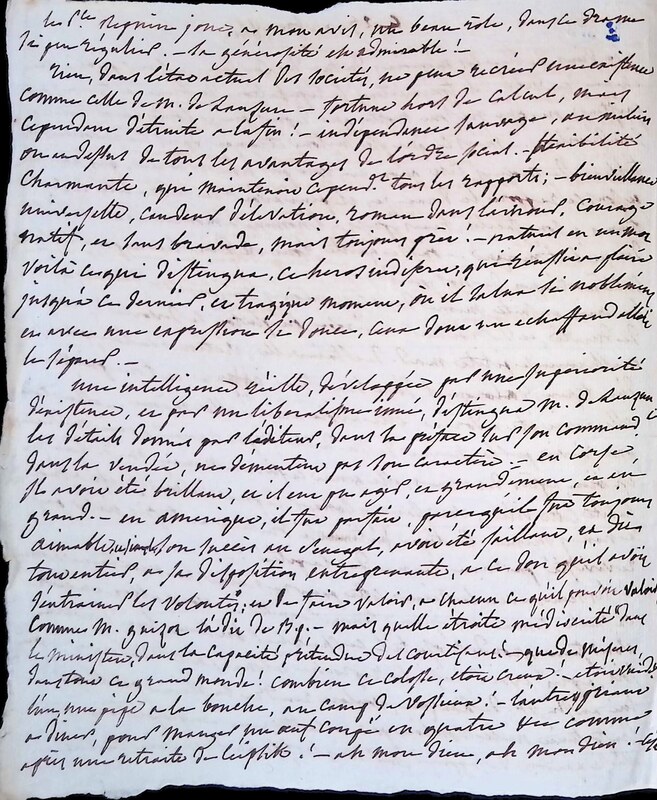 les Sce Reprim joue, a mon avis, un beau rôle, dans ce drame
si peu régulier – la générosité est admirable! –
Rien, dans l'état actuel des sociétés, ne peut recréer une existence
comme celle de M. de Lauzun – fortune hors de calcul, mais
cependant détruite a la fin! – indépendance sauvage, au milieu
ou au dessus de tous les avantages de l'ordre social – flexibilité
charmante, qui maintenoit cepend.t tous les rapports; – bienveillance
universelle, candeur d'élévation, roman dans l'esprit, courage
natif, et sans bravade, mais toujours prêt! – naturel en un mot
voilà ce qui distingua, ce heros indiscret, qui réussit a plaire
jusqu'à ce dernier, et tragique moment, où il salua si noblement
et avec une expression si douce, ceux dont un echaffaud alloit
le séparer. –
une intelligence réelle, développée par une superiorité
d'existence, et par un liberalisme inné, distingue M. de Lauzun
les détails donnés par l'éditeur, dans la préface sur son command.t
dans la vendée, ne démentent pas son caractère – en Corse
il avoit été brillant, et il eut pu agir, et grandement, et en
grand. – en amerique, il fut parfait, parcequ'il fut toujours
aimable, son succès au Senegal, avoit été saillant, et dû
tout entier, a sa disposition entreprenante, a ce don qu'il avoit
d'entrainer les volontés, et de faire valoir, a chacun ce qu'il pouvoit valoir
comme M. guizot l'a dit de – mais quelle étroite médiocrité dans
le ministère, dans la capacité prétendue des courtisans! – que de misères,
dans tout ce grand monde! combien ce colosse, etoit creux. –
l'une une pipe a la bouche, au camp de Vossieux! – l'autre
a diner, pour manger un oeuf coupé en quatre &c comme
après une retraite de Leipsik! – ah mon dieu, ah mon dieu!